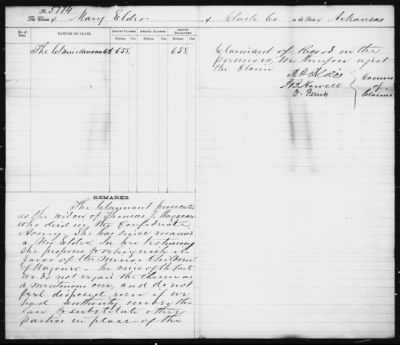 No. 3774
The Claim of Mary Elder of Clark Co. in the State of Arkansas
No. of Item.
NATURE OF CLAIM.
AMOUNT CLAIMED.
AMOUNT ALLOWED.
AMOUNT DISALLOWED.
Dollars. Cts.
Dollars. Cts.
Dollars. Cts.
The Claim 658. 658
REMARKS.
The Claimant prosecutes
as the widow of Thomas J.
who died in the Confederate
Army. She has since married
a Mr Elder. In her testimony
she proposes to relinquish in
favor of the minor Children
of In view of the fact
we do not regard the Claim as
a meritorious one, and do not
feel disposed even if we
had authority under the
law to substitute other
parties in place of the
Claimant of Record in the
premises, We therefore reject
the Claim
A. O. Aldis
J. B. Howell
O. Ferriss
Commrs
of
Claims